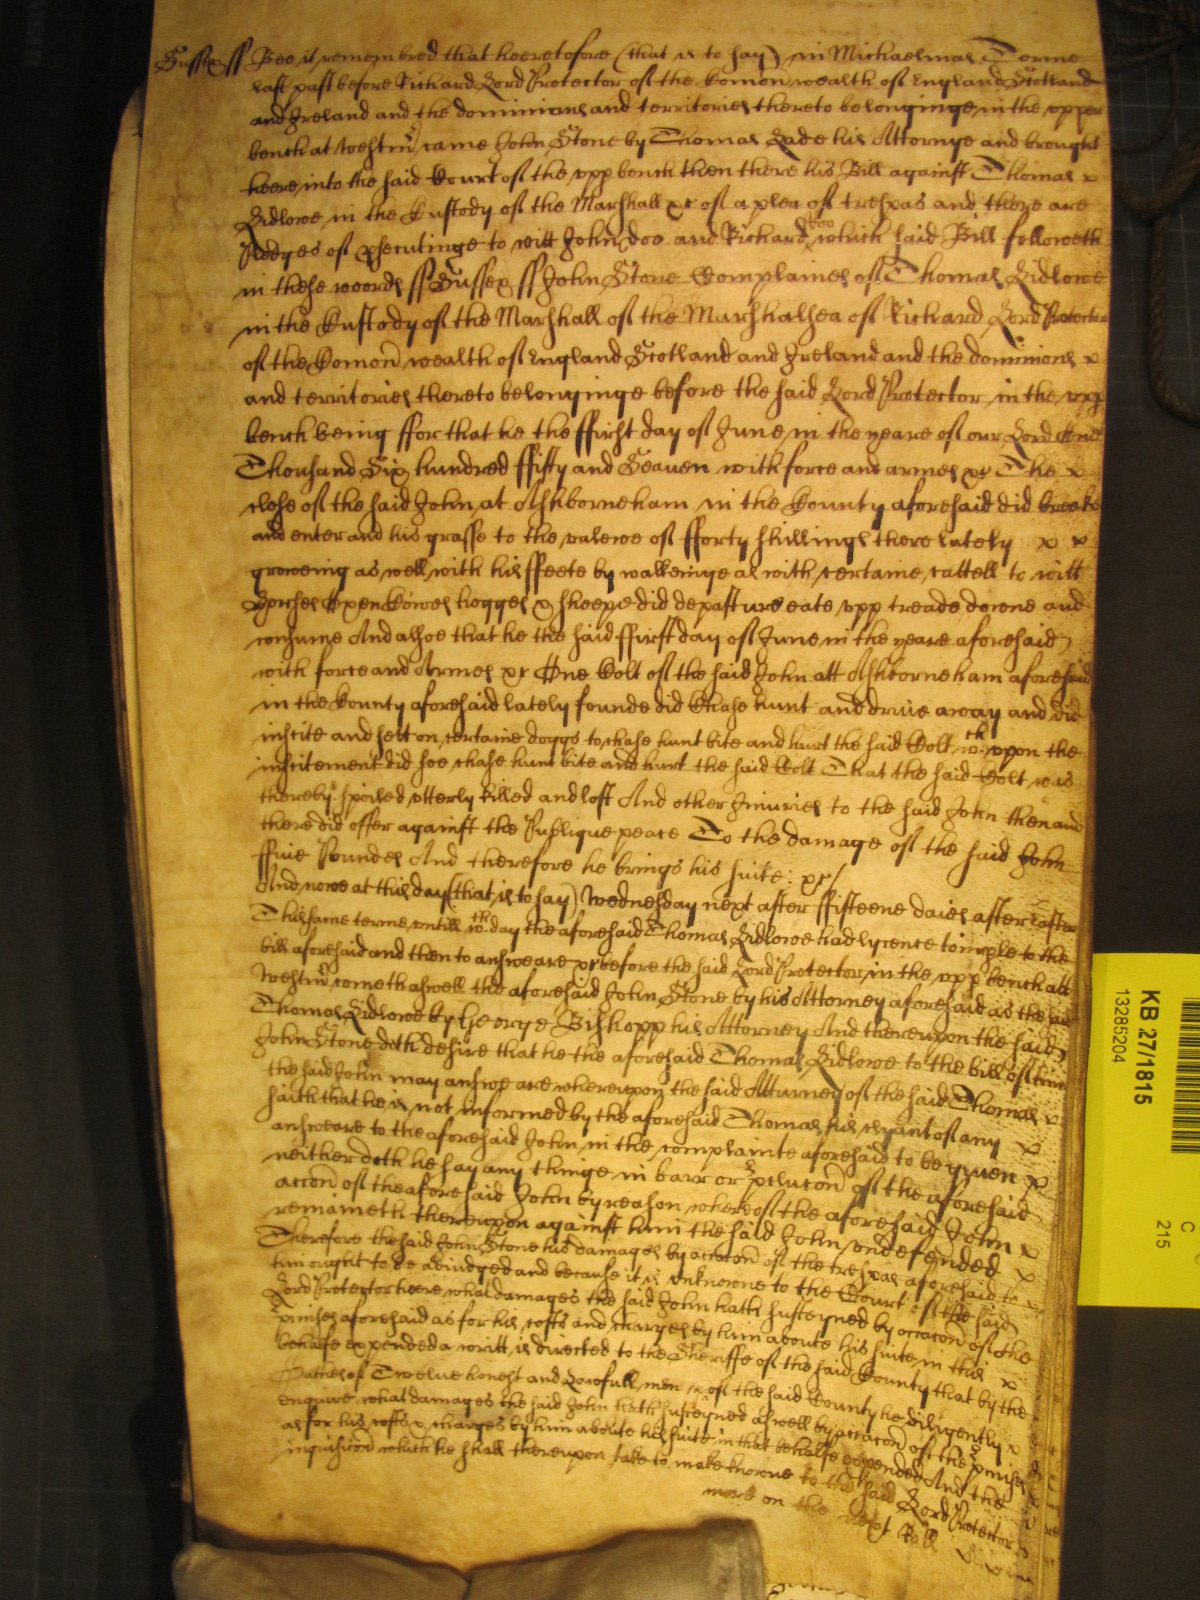 Sussex ss Bee it remembred that heeretofore (that is to say) in Michaelmas Terme
last past before Richard Lord Protector of the Comon wealth of England Scotland
and Ireland and the dominions and territories thereto belonginge in the upper
bench at Westmr came John Stone by Thomas Lade his Attornye and brought
heere into the said Court of the upp bench then there his Bill against Thomas x
Lidlowe in the Custody of the Marshall xc of a plea of trespas and there are
Pledges of psecutinge to witt John doo and Richard Roo which said Bill followeth
in these woords ss Sussex ss John Stone Complaines of Thomas Lidlowe
in the Custody of the Marshall of the Marshalsea of Richard Lord Protector
of the Comon wealth of England Scotland and Ireland and the dominions x
and territories thereto belonginge before the said Lord Protector in the upp
bench being ffor that he the ffirst day of June in the yeare of our Lord One
Thousand Six hundred ffifty and Seaven with force and armes xc The x
close of the said John at Ashborneham in the County aforesaid did breake
and enter and his grasse to the valewe of fforty shillings there lately x x
groweing as well with his ffeete by walkeinge as with certaine cattell to witt
horses Oxen Cowes hogges & sheepe did depasture eate upp treade downe and
consume And alsoe that he the said ffirst day of June in the yeare aforesaid
with force and Armes xc One Colt of the said John att Ashborneham aforesaid
in the County aforesaid lately founde did Chase hunt and drive away and did
inscite and sett on certaine doggs to chase hunt bite and hurt the said Colt wch upon the
inscitement did soe chase hunt bite and hurt the said Colt That the said Colt was
thereby spoiled utterly killed and lost And other Injuries to the said John then and
there did offer against the Publique peace To the damage of the said John
ffive Poundes And therefore he brings his suite xc/
And nowe at this day (that is to say) Wednesday next after ffifteene daies after Easter
This same terme untill wch day the aforesaid Thomas Lidlowe had lycence to imple to the
bill aforesaid and then to answeare xc before the said Lord Protector in the upp bench att
Westmr cometh aswell the aforesaid John Stone by his Attorney aforesaid as the said
Thomas Lidlowe by George Bishopp his Attorney And thereupon the said
John Stone doth desire that he the aforesaid Thomas Lidlowe to the bill of him
the said John may answeare whereupon the said Atturney of the said Thomas x
saith that he is not informed by the aforesaid Thomas his clyant of any x
answeare to the aforesaid John in the complainte aforesaid to be given x
neither doth he say any thinge in barr or pclucon of the aforesaid
accon of the aforesaid John by reason whereof the aforesaid John x
remaineth thereupon against him the said John undefended x
Therefore the said John Stone his damages by occacon of the trespas aforesaid to x
him ought to be adiudged and because it is unknowne to the Court of the said
Lord Protector heere what damages the said John hath susteyned by occacon of the
pmises aforesaid as for his costs and charges by him aboute his suite in this x
behalfe expended a writt is directed to the Sheriffe of the said County that by the
Oathes of Twelve honest and Lawfull men x of the said County he diligently x
enquire what damages the said John hath susteyned aswell by occacon of the pmises
as for his costs & charges by him aboute his suite in that behalfe expended And the
inquisicon which he shall thereupon take to make knowne to the said Lord Protector
more on the next Roll
KB 27/1815
13285204
C
215